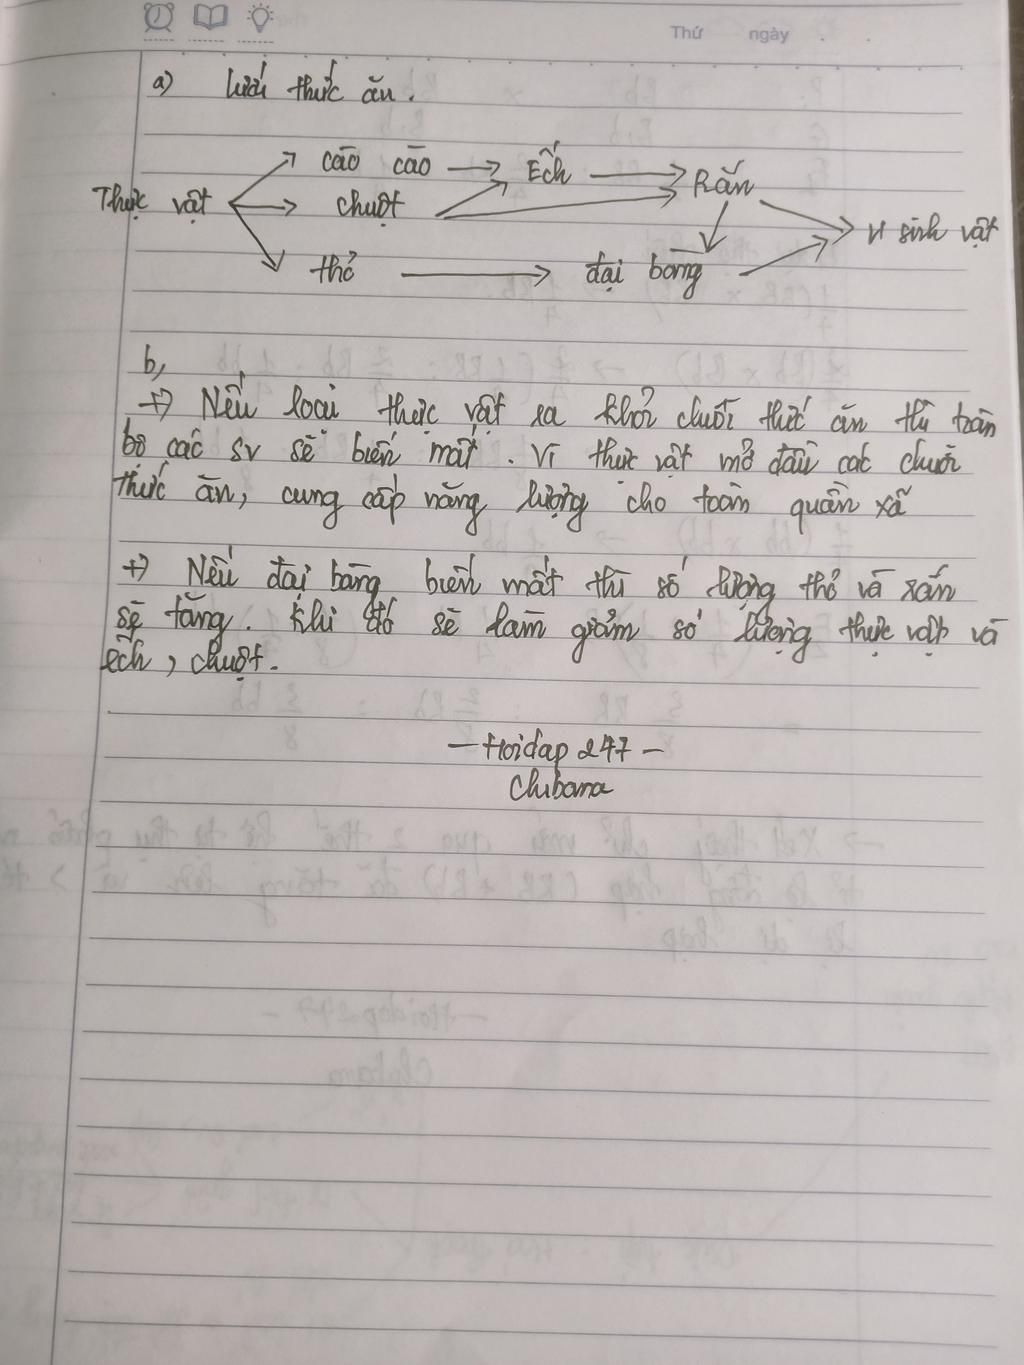 Thứ ngày
a) lưới thức ăn.
cào cào → Ếch → Rắn
Thực vật → chuột → vi sinh vật
thỏ → đại bàng
b,
+) Nếu loại thực vật ra khỏi chuỗi thức ăn thì toàn
bộ các sv sẽ biến mất. Vì thực vật mở đầu các chuỗi
thức ăn, cung cấp năng lượng cho toàn quần xã
+) Nếu đại bàng biến mất thì số lượng thỏ và rắn
sẽ tăng. Khi đó sẽ làm giảm số lượng thực vật và
ếch, chuột.
— Hoidap 247 —
Chibana